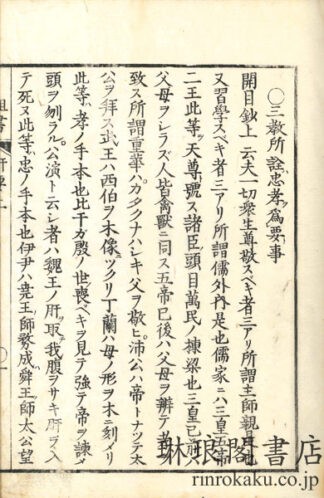 〇三教所詮忠孝為要事
開目鈔上云夫一切衆生尊敬スベキ者三アリ所謂主師親是也
又習學スベキ者三アリ所謂儒外内是也儒家ニハ三皇五帝
三王此等ヲ天尊ト號ス諸臣ノ頭目萬民ノ棟梁也三皇已前ハ
父母ヲシラズ人皆禽獸ニ同ス五帝已後ハ父母ヲ辨テ孝ヲ
致ス所謂重華ハカタクナハシキ父ヲ敬ヒ沛公ハ帝トナツテ太
公ヲ拜ス武王ハ西伯ヲ木像ニツクリ丁蘭ハ母ノ形ヲ木ニ刻メリ
此等ハ孝ノ手本也比干ハ殷ノ世ノ喪ベキヲ見テ強テ帝ヲ諫メ
頭ヲ刎ラル公演ト云シ者ハ魏王ノ肝ヲ取テ我腹ヲサキ肝ヲ入
テ死ス此等ハ忠ノ手本也伊尹ハ堯王ノ師務成ハ舜王ノ師太公望
琳琅閣書店
rinrokaku.co.jp